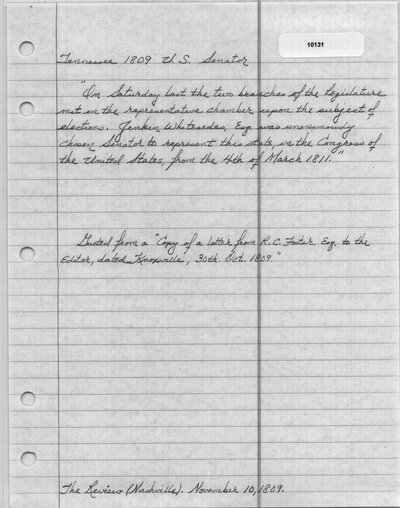 10131
Tennessee 1809 U.S. Senator
"On Saturday last the two branches of the legislature
met in the representative chamber upon the subject of
elections. Jenkin Whitesides, Esq. was unanimously
chosen Senator to represent this state, in the Congress of
the United States, from the 4th of March 1811."
Quoted from a "Copy of a letter from R.C. Foster, Esq. to the
Editor, dated Knoxville, 30th. Oct. 1809."
The Review (Nashville). November 10, 1809.